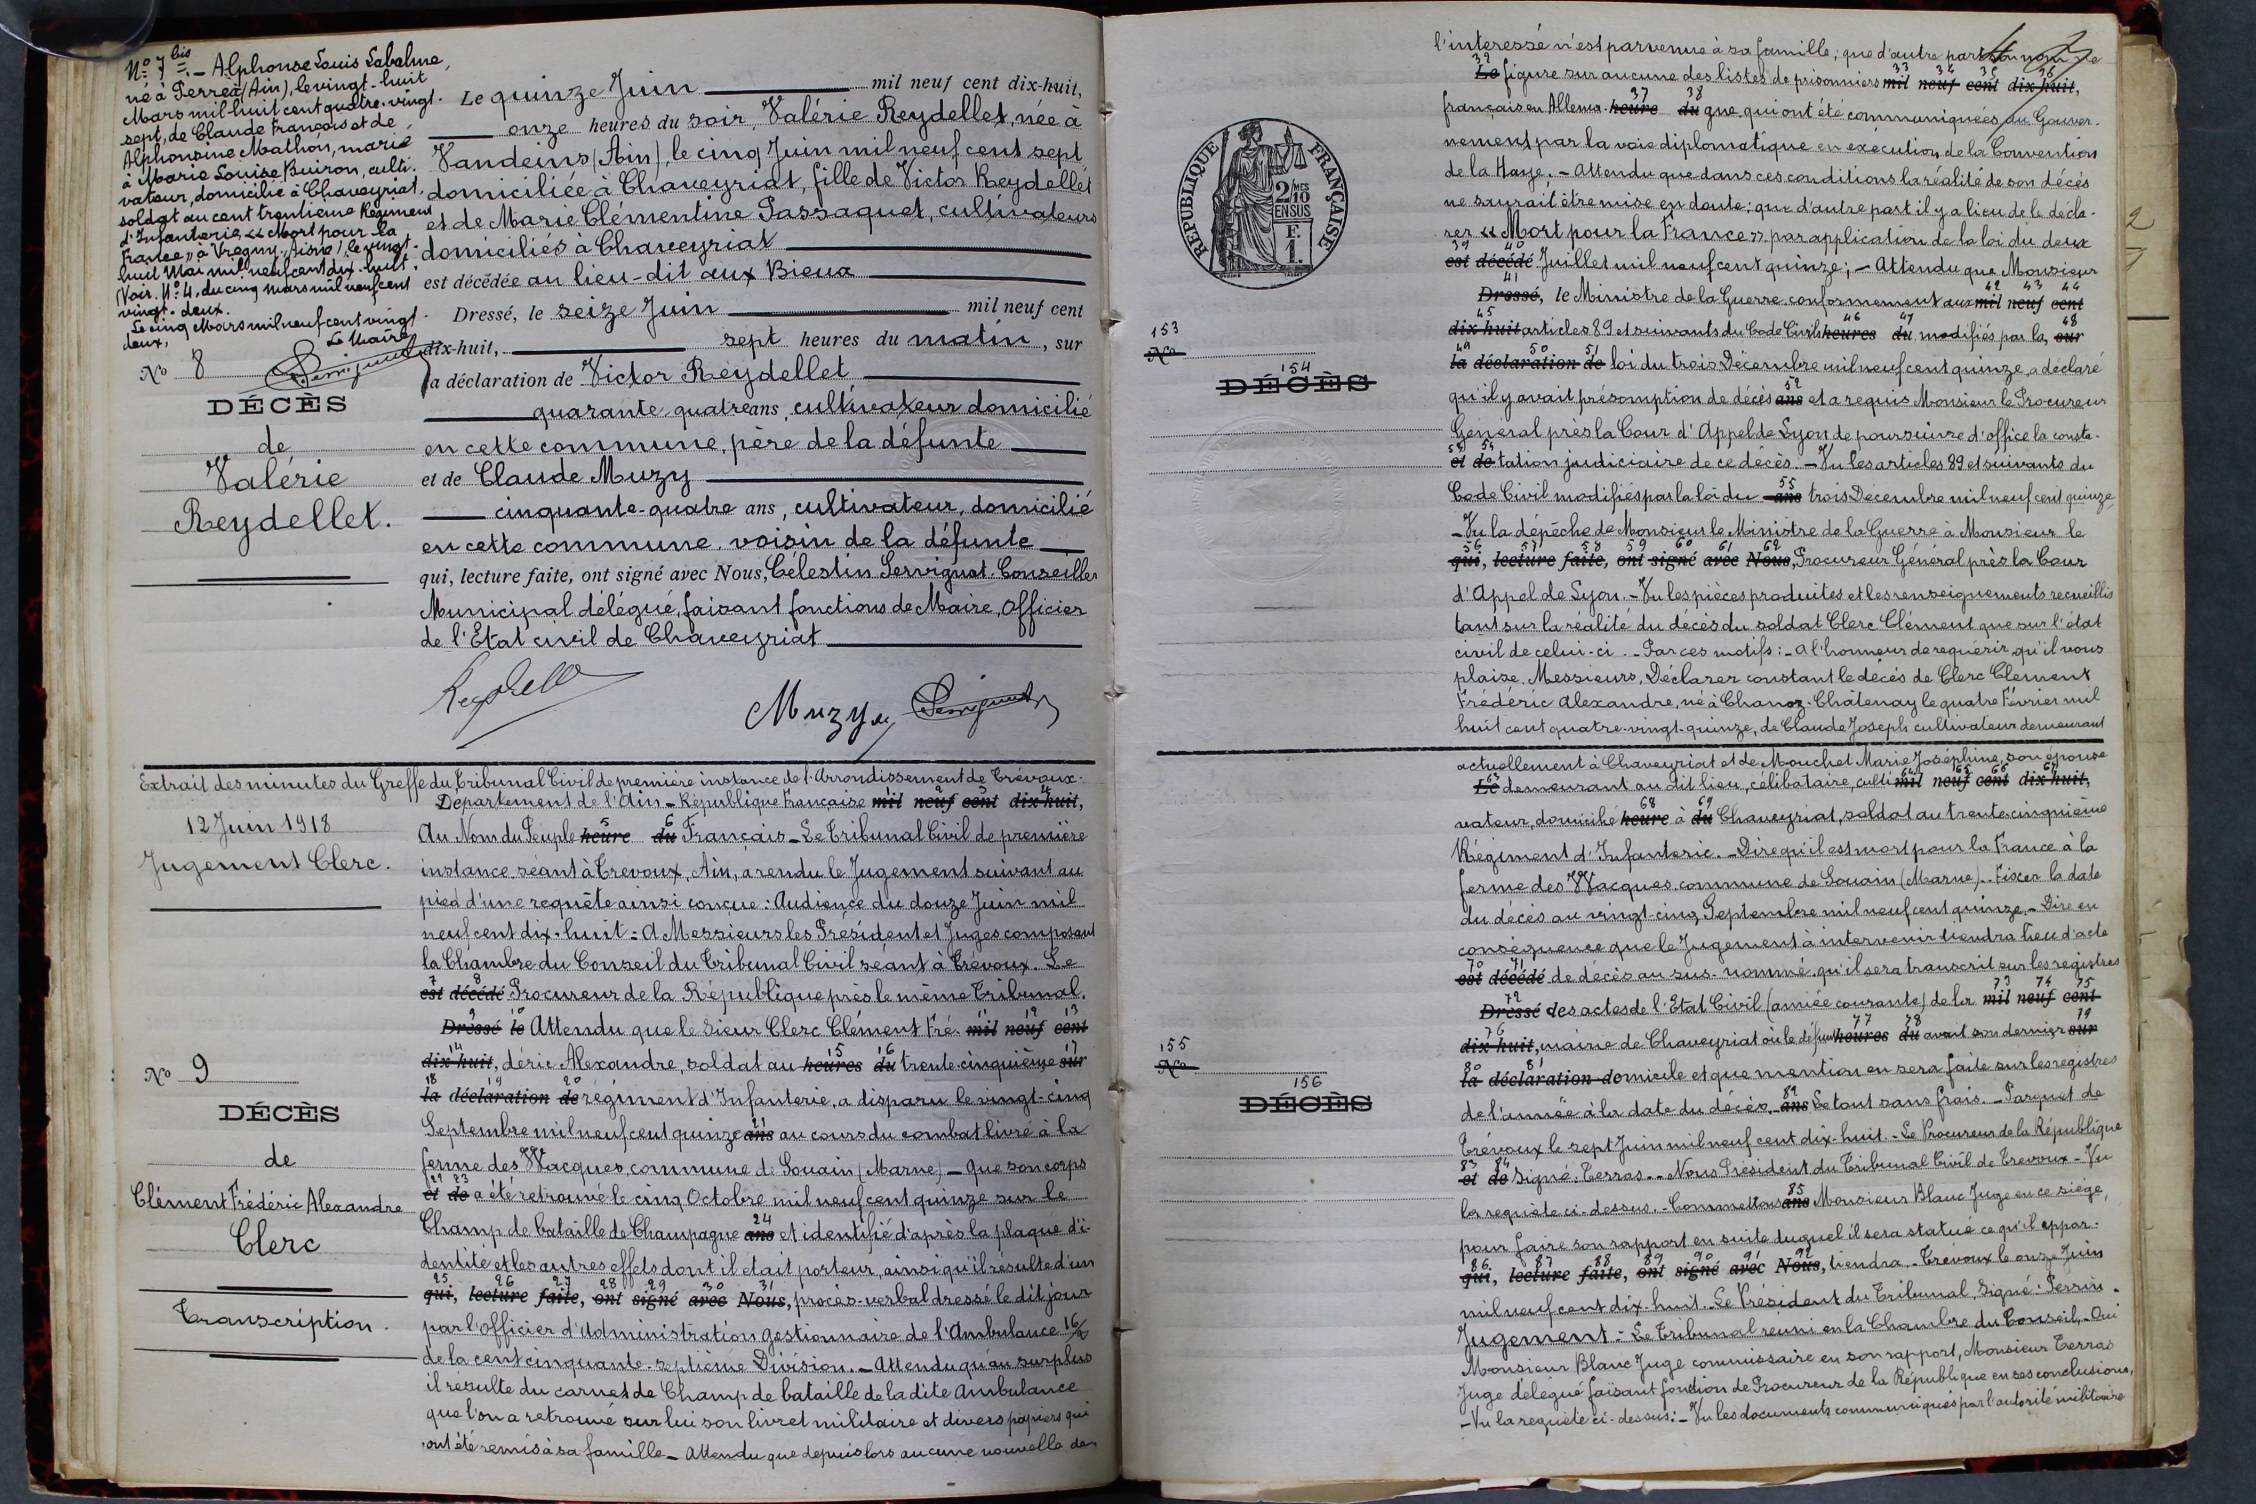 No 7 bis. - Alphonse Louis Labalme,
né à Perrex (Ain), le vingt-huit
Mars mil huit cent quatre-vingt-
sept, de Claude François et de
Alphonsine Mathon, marié
à Marie Louise Buiron, culti-
vateur, domicilié à Chaveyriat,
soldat au cent trentième Régiment
d'Infanterie, « Mort pour la
France » à Vregny (Aisne) le vingt-
huit Mai mil neuf cent dix-huit.
(Voir No 4, du cinq mars mil neuf cent
vingt-deux.
Le cinq Mars mil neuf cent vingt-
deux,
Le Maire
No 8
DÉCÈS
de
Valérie
Reydellet.
Le quinze Juin mil neuf cent dix-huit,
onze heures du soir, Valérie Reydellet, née à
Vandeins (Ain), le cinq Juin mil neuf cent sept
domiciliée à Chaveyriat, fille de Victor Reydellet
et de Marie Clémentine Passaquet, cultivateurs
domiciliés à Chaveyriat
est décédée au lieu-dit aux Bieux
Dressé, le seize Juin mil neuf cent
dix-huit, sept heures du matin, sur
la déclaration de Victor Reydellet
quarante quatre ans, cultivateur domicilié
en cette commune, père de la défunte
et de Claude Muzy
cinquante-quatre ans, cultivateur, domicilié
en cette commune, voisin de la défunte
qui, lecture faite, ont signé avec Nous, Célestin Servignat Conseiller
Municipal délégué, faisant fonctions de Maire, Officier
de l'Etat civil de Chaveyriat
Reydellet
Muzy
Extrait des minutes du Greffe du Tribunal Civil de première instance de l'Arrondissement de Trévoux-
12 Juin 1918
Jugement Clerc.
No 9
DÉCÈS
de
Clément Frédéric Alexandre
Clerc
Transcription.
Département de l'Ain - République Française mil neuf cent dix-huit,
Au Nom du Peuple heure du Français - Le Tribunal Civil de première
instance séant à Trévoux, Ain, a rendu le Jugement suivant au
pied d'une requête ainsi conçue : Audience du douze Juin mil
neuf cent dix-huit : A Messieurs les Président et Juges composant
la Chambre du Conseil du Tribunal Civil séant à Trévoux. Le
est décédé Procureur de la République près le même Tribunal.
Dressé le Attendu que le Sieur Clerc Clément Fré- mil neuf cent
dix-huit, déric Alexandre, soldat au heures du trente-cinquième sur
la déclaration de régiment d'Infanterie, a disparu le vingt-cinq
Septembre mil neuf cent quinze ans au cours du combat livré à la
ferme des Wacques, commune de Souain (Marne) - que son corps
et de a été retrouvé le cinq Octobre mil neuf cent quinze sur le
Champ de bataille de Champagne ans et identifié d'après la plaque d'i-
dentité et les autres effets dont il était porteur, ainsi qu'il résulte d'un
qui, lecture faite, ont signé avec Nous, procès-verbal dressé le dit jour
par l'officier d'Administration gestionnaire de l'Ambulance 16/
de la cent cinquante-septième Division. - Attendu qu'au surplus
il résulte du carnet de Champ de bataille de la dite Ambulance
que l'on a retrouvé sur lui son livret militaire et divers papiers qui
ont été remis à sa famille - Attendu que depuis lors aucune nouvelle de
l'intéressé n'est parvenue à sa famille ; que d'autre part son nom ne
Le figure sur aucune des listes de prisonniers mil neuf cent dix-huit,
français en Allema- heure du gne qui ont été communiquées au Gouver-
nement par la voie diplomatique en exécution de la Convention
de la Haye. - Attendu que dans ces conditions la réalité de son décès
ne saurait être mise en doute ; que d'autre part il y a lieu de le décla-
rer « Mort pour la France » par application de la loi du deux
est décédé Juillet mil neuf cent quinze ; - Attendu que Monsieur
Dressé, le Ministre de la Guerre conformément aux mil neuf cent
dix-huit articles 89 et suivants du Code Civil heures du modifiés par la sur
la déclaration de loi du trois Décembre mil neuf cent quinze, a déclaré
qu'il y avait présomption de décès ans et a requis Monsieur le Procureur
Général près la Cour d'Appel de Lyon de poursuivre d'office la consta-
et de tation judiciaire de ce décès. - Vu les articles 89 et suivants du
Code Civil modifiés par la loi du ans trois Décembre mil neuf cent quinze,
- Vu la dépêche de Monsieur le Ministre de la Guerre à Monsieur le
qui, lecture faite, ont signé avec Nous, Procureur Général près la Cour
d'Appel de Lyon. - Vu les pièces produites et les renseignements recueillis
tant sur la réalité du décès du soldat Clerc Clément que sur l'état
civil de celui-ci. - Par ces motifs : - a l'honneur de requérir qu'il vous
plaise, Messieurs, Déclarer constant le décès de Clerc Clément
Frédéric Alexandre, né à Chanoz-Châtenay le quatre Février mil
huit cent quatre-vingt-quinze, de Claude Joseph cultivateur demeurant
actuellement à Chaveyriat et de Mouchet Marie Joséphine, son épouse
Le demeurant au dit lieu, célibataire, culti mil neuf cent dix-huit,
vateur, domicilié heure à du Chaveyriat, soldat au trente-cinquième
Régiment d'Infanterie. - Dire qu'il est mort pour la France à la
ferme des Wacques, commune de Souain (Marne). - Fixer la date
du décès au vingt-cinq Septembre mil neuf cent quinze. - Dire en
conséquence que le Jugement à intervenir tiendra lieu d'acte
est décédé de décès au sus-nommé, qu'il sera transcrit sur les registres
Dressé des actes de l'Etat Civil (année courante) de la mil neuf cent
dix-huit, mairie de Chaveyriat où le défunt heures du avait son dernier sur
la déclaration domicile et que mention en sera faite sur les registres
de l'année à la date du décès. ans Le tout sans frais. - Parquet de
Trévoux le sept Juin mil neuf cent dix-huit. - Le Procureur de la République
et de Signé : Terras. - Nous Président du Tribunal Civil de Trévoux - Vu
la requête ci-dessus. - Commettons ans Monsieur Blanc Juge en ce siège,
pour faire son rapport en suite duquel il sera statué ce qu'il appar-
qui, lecture faite, ont signé avec Nous, tiendra. - Trévoux le onze Juin
mil neuf cent dix-huit. - Le Président du Tribunal, Signé : Perrin.
Jugement : - Le Tribunal réuni en la Chambre du Conseil, - Ouï
Monsieur Blanc Juge commissaire en son rapport, Monsieur Terras
Juge délégué faisant fonction de Procureur de la République en ses conclusions,
- Vu la requête ci-dessus : - Vu les documents communiqués par l'autorité militaire
RÉPUBLIQUE FRANÇAISE
2/10 MES
EN SUS
F.
1.
153
No
154
DÉCÈS
155
No
156
DÉCÈS